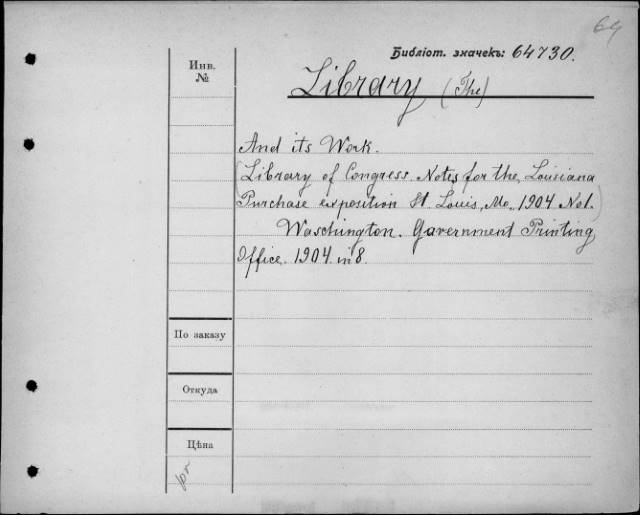 64
Библіот. значекъ: 64730.
Инв.
№
Library (The)
And its Work.
(Library of Congress. Notes for the Louisiana
Purchase exposition St. Louis, Mo., 1904 No 1.)
Waschington. Government Printing
Office. 1904. in 8.
По заказу
Откуда
Цѣна